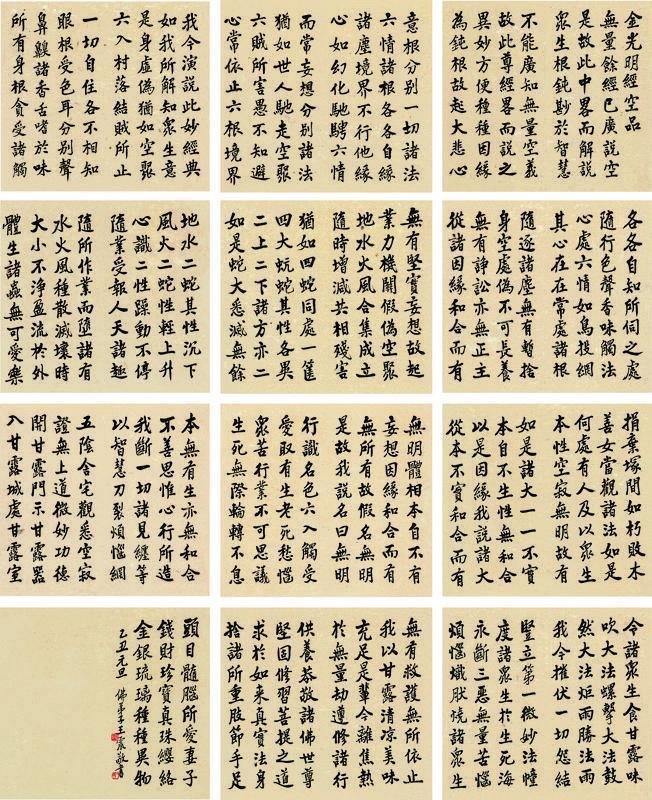 金光明經空品
無量餘經已廣說空
是故此中畧而解說
眾生根鈍尠於智慧
不能廣知無量空義
故此尊經畧而說之
異妙方便種種因緣
為鈍根故起大悲心
意根分別一切諸法
六情諸根各各自緣
諸塵境界不行他緣
心如幻化馳騁六情
而常妄想分別諸法
猶如世人馳走空聚
六賊所害愚不知避
心常依止六根境界
我今演說此妙經典
如我所解知眾生意
是身虛偽猶如空聚
六入村落結賊所止
一切自住各不相知
眼根受色耳分別聲
鼻齅諸香舌嗜於味
所有身根貪受諸觸
各各自知所伺之處
隨行色聲香味觸法
心處六情如鳥投網
其心在在常處諸根
隨逐諸塵無有暫捨
身空虛偽不可長養
無有諍訟亦無正主
從諸因緣和合而有
無有堅實妄想故起
業力機關假偽空聚
地水火風合集成立
隨時增減共相殘害
猶如四蛇同處一篋
四大蚖蛇其性各異
二上二下諸方亦二
如是蛇大悉滅無餘
地水二蛇其性沉下
風火二蛇性輕上升
心識二性躁動不停
隨業受報人天諸趣
隨所作業而墮諸有
水火風種散滅壞時
大小不淨盈流於外
體生諸蟲無可愛樂
捐棄塚間如朽敗木
善女當觀諸法如是
何處有人及以眾生
本性空寂無明故有
如是諸大一一不實
本自不生性無和合
以是因緣我說諸大
從本不實和合而有
無明體相本自不有
妄想因緣和合而有
無所有故假名無明
是故我說名曰無明
行識名色六入觸受
愛取有生老死愁惱
眾苦行業不可思議
生死無際輪轉不息
本無有生亦無和合
不善思惟心行所造
我斷一切諸見纏等
以智慧刀裂煩惱網
五陰舍宅觀悉空寂
證無上道微妙功德
開甘露門示甘露器
入甘露城處甘露室
令諸眾生食甘露味
吹大法螺擊大法鼓
然大法炬雨勝法雨
我今摧伏一切怨結
豎立第一微妙法幢
度諸眾生於生死海
永斷三惡無量苦惱
煩惱熾然燒諸眾生
無有救護無所依止
我以甘露清涼美味
充足是輩令離焦熱
於無量劫遵修諸行
供養恭敬諸佛世尊
堅固修習菩提之道
求於如來真實法身
捨諸所重肢節手足
頭目髓腦所愛妻子
錢財珍寶真珠纓絡
金銀琉璃種種異物
乙丑元旦 佛弟子王震敬書